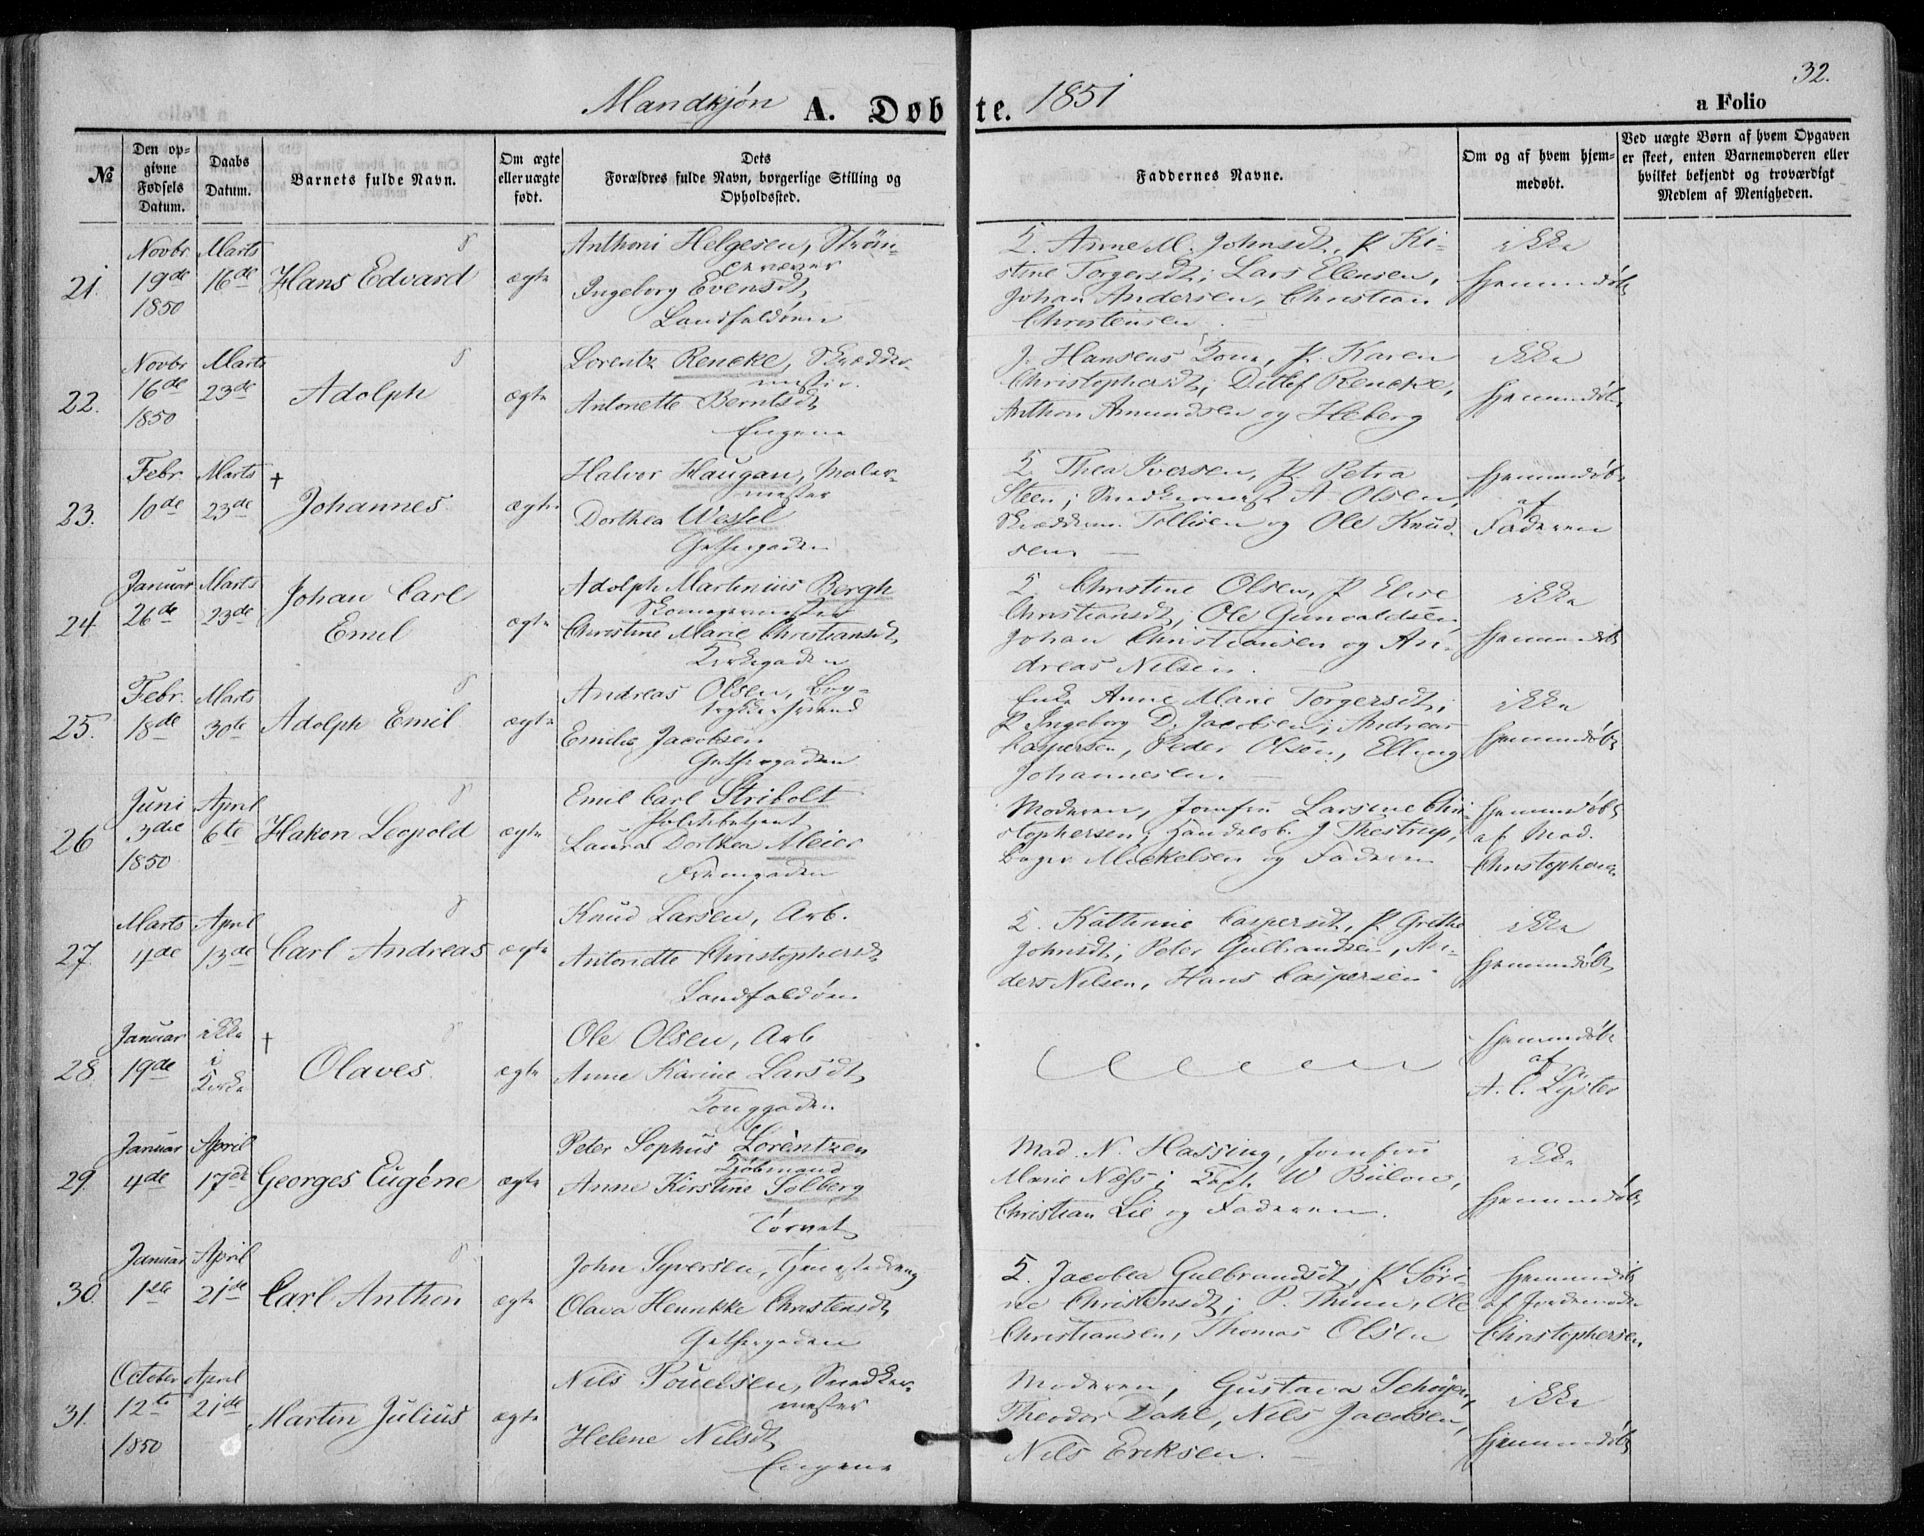 32.
Mandkjøn A. Døbte. 1851
a Folio
№
Den opgivne Fødsels Datum.
Daabs Datum.
Barnets fulde Navn.
Om ægte eller uægte født.
Dets Forældres fulde Navn, borgerlige Stilling og Opholdssted.
Faddernes Navne.
Om og af hvem hjemmedøbt.
Ved uægte Børn af hvem Opgaven er skeet, enten Barnemoderen eller hvilket bekjendt og troværdigt Medlem af Menigheden.
21. Novbr 19de 1850 Marts 16de Hans Edvard ægte
Anthoni Helgesen,
Ingeborg Evensdt
Landfaldøen
Anne M. Johnsdt, P. Ki-
stine Torgersdt; Lars Elensen,
Johan Andersen, Christian
Christensen
ikke
hjemmedøbt
22. Novbr 16de 1850 Marts 23de Adolph ægte
Lorentz Rencke, Skrædder
mester.
Antonette Berntsdt
Engene
J. Hansens Kone, P. Karen
Christophersdt; Ditlef Rencke,
Anthon Amundsen og Heberg
ikke
hjemmedøbt
23. Febr 10de Marts 23de † Johannes ægte
Halvor Haugan, Maler-
mester
Dorthea Wessel
Gethergaden
Thea Iversen, P. Petra
Steen; Snedkermest A Olsen,
Skrædderm. Tollisen og Ole Knud
sen
hjemmedøbt
af
Faderen
24. Januar 26de Marts 23de Johan Carl
Emil ægte
Adolph Martinius Bergh
Skomagermester
Christine Marie Christiansdt
Kirkegaden
Christine Olsen, P Elise
Christiansdt; Ole Gunvaldsen,
Johan Christiansen og An-
dreas Nilsen.
ikke
hjemmedøbt
25. Febr. 18de Marts 30te Adolph Emil ægte
Andreas Olsen, Bog-
trykkersvend
Emilie Jacobsen
Gethergaden
Enke Anne Marie Torgersdt;
P Ingeborg D. Jacobsen; Andreas
Caspersen, Peder Olsen, Elling
Johannesen.
ikke
hjemmedøbt
26 Juni 3die 1850 April 6te Hakon Leopold ægte
Emil Carl Stribolt
Politibetjent
Laura Dorthea Meier
Strømgaden
Moderen, Jomfru Larsine Chri-
stophersen; Handelsb. J Thestrup,
Bager Mickelsen og Faderen
hjemmedøbt
af Mad.
Christophersen
27. Marts 4de April 13de Carl Andreas ægte
Knud Larsen, Arb.
Antonette Christophersdt
Landfaldøen
Kathrine Caspersdt, P. Grethe
Johnsdt; Peter Gulbrandsen, An-
ders Nilsen, Hans Caspersen
ikke
hjemmedøbt
28. Januar 19de ikke i Kirke † Olaves ægte
Ole Olsen, Arb
Anne Karine Larsdt
Konggaden
hjemmedøbt
af
A. C. Lyster
29 Januar 4de April 17de Georges Eugéne ægte
Peter Sophus Lorentzen
Kjøbmand
Anne Kirstine Solberg
Torvet
Mad. N. Hassing, Jomfru
Marie Næss; Kapt. W Bülow,
Christian Lie og Faderen.
ikke
hjemmedøbt
30. Januar 1ste April 21de Carl Anthon ægte
John Syversen, Tjenestedreng
Olava Henrikke Christensdt
Gethergaden
Jacobea Gulbrandsdt, P Søri-
ne Christensdt; P. Thune, Ole
Christiansen, Thomas Olsen
hjemmedøbt
af Jordemoder
Christophersen
31. October 12te 1850 April 21de Martin Julius ægte
Nils Pouelsen, Snedker-
mester
Helene Nilsdt
Engene
Moderen, Gustava Schøyen,
Theodor Dahl, Nils Jacobsen,
Nils Eriksen.
ikke
hjemmedøbt